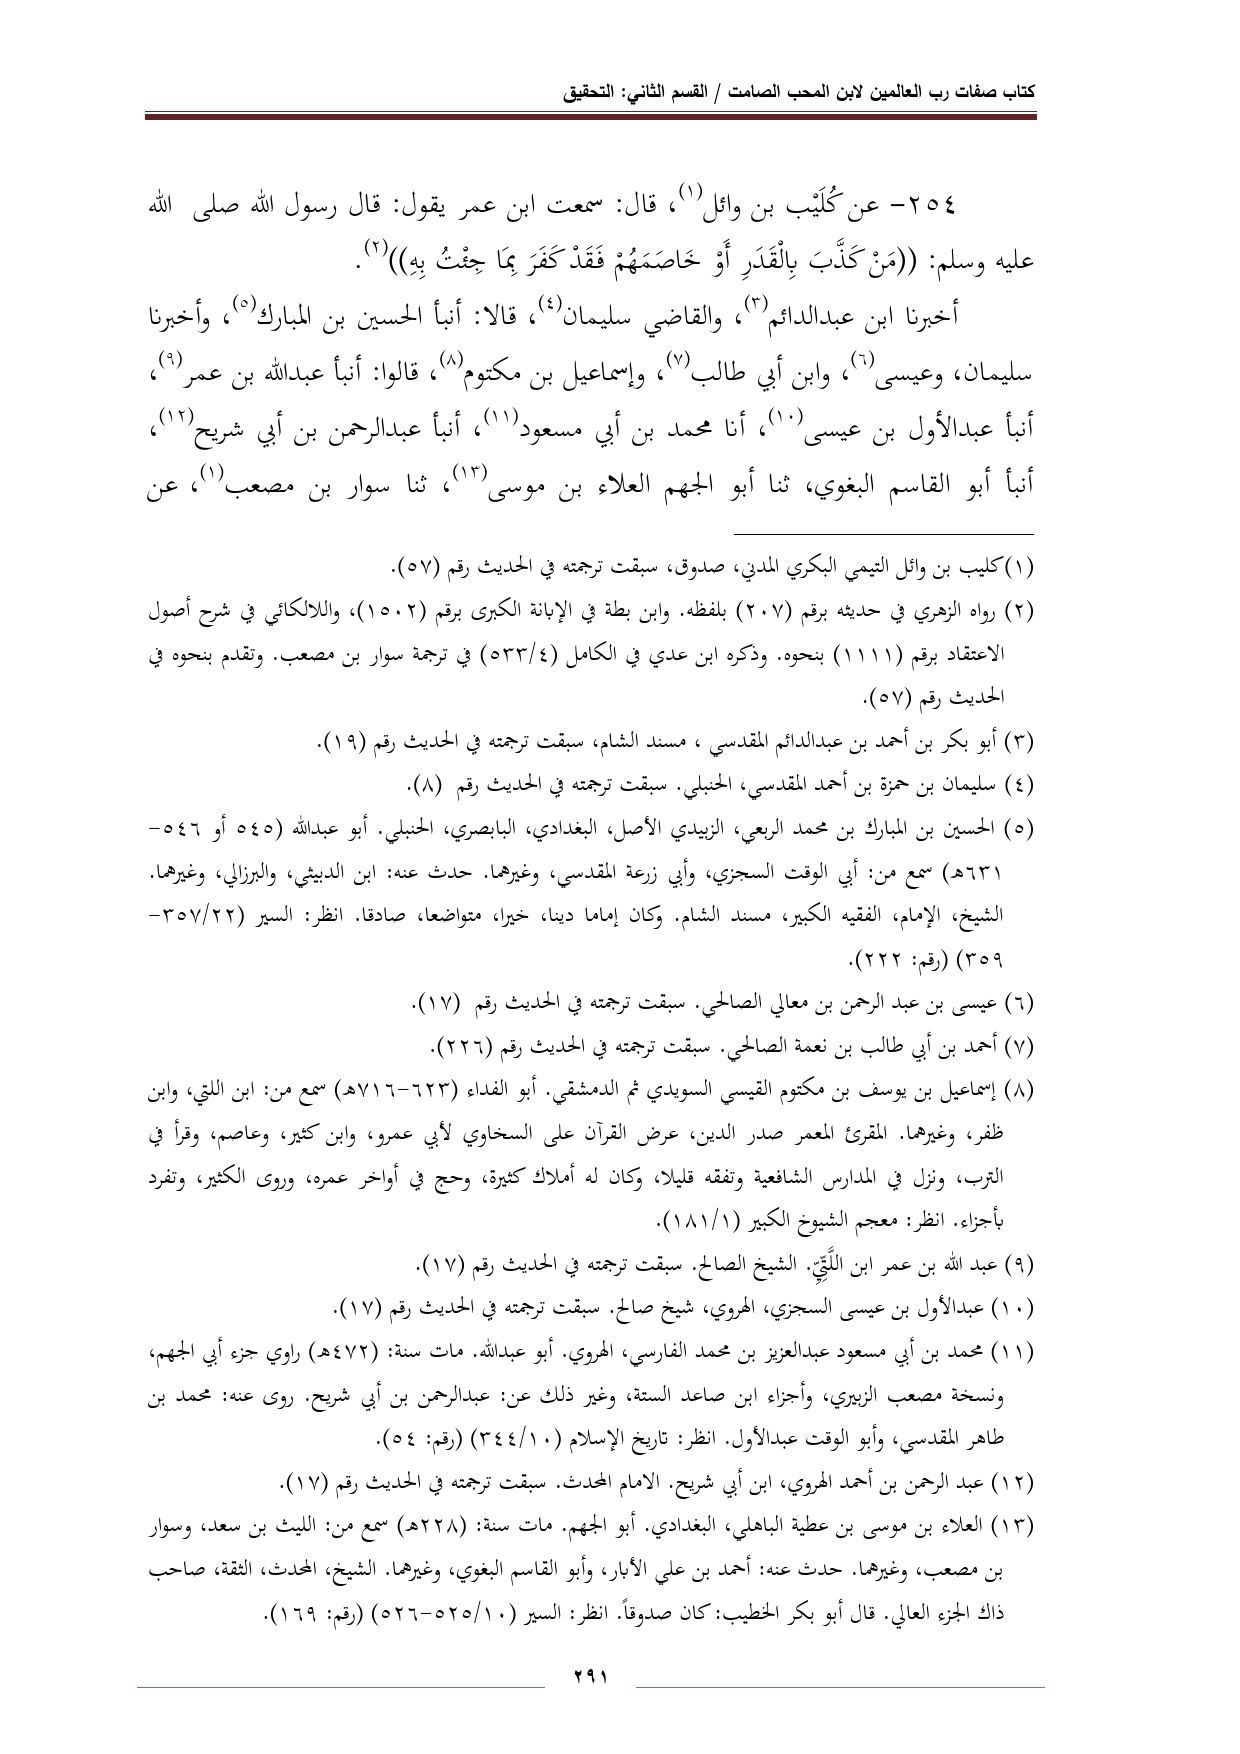 كتاب صفات رب العالمين لابن المحب الصامت / القسم الثاني: التحقيق
٢٥٤- عن كُلَيْب بن وائل(١)، قال: سمعت ابن عمر يقول: قال رسول الله صلى الله
عليه وسلم: ((مَنْ كَذَّبَ بِالْقَدَرِ أَوْ خَاصَمَهُمْ فَقَدْ كَفَرَ بِمَا جِئْتُ بِهِ))(٢).
أخبرنا ابن عبدالدائم(٣)، والقاضي سليمان(٤)، قالا: أنبأ الحسين بن المبارك(٥)، وأخبرنا
سليمان، وعيسى(٦)، وابن أبي طالب(٧)، وإسماعيل بن مكتوم(٨)، قالوا: أنبأ عبدالله بن عمر(٩)،
أنبأ عبدالأول بن عيسى(١٠)، أنا محمد بن أبي مسعود(١١)، أنبأ عبدالرحمن بن أبي شريح(١٢)،
أنبأ أبو القاسم البغوي، ثنا أبو الجهم العلاء بن موسى(١٣)، ثنا سوار بن مصعب(١)، عن
(١)كليب بن وائل التيمي البكري المدني، صدوق، سبقت ترجمته في الحديث رقم (٥٧).
(٢) رواه الزهري في حديثه برقم (٢٠٧) بلفظه. وابن بطة في الإبانة الكبرى برقم (١٥٠٢)، واللالكائي في شرح أصول
الاعتقاد برقم (١١١١) بنحوه. وذكره ابن عدي في الكامل (٥٣٣/٤) في ترجمة سوار بن مصعب. وتقدم بنحوه في
الحديث رقم (٥٧).
(٣) أبو بكر بن أحمد بن عبدالدائم المقدسي ، مسند الشام، سبقت ترجمته في الحديث رقم (١٩).
(٤) سليمان بن حمزة بن أحمد المقدسي، الحنبلي. سبقت ترجمته في الحديث رقم (٨).
(٥) الحسين بن المبارك بن محمد الربعي، الزبيدي الأصل، البغدادي، البابصري، الحنبلي. أبو عبدالله (٥٤٥ أو ٥٤٦-
٦٣١هـ) سمع من: أبي الوقت السجزي، وأبي زرعة المقدسي، وغيرهما. حدث عنه: ابن الدبيثي، والبرزالي، وغيرهما.
الشيخ، الإمام، الفقيه الكبير، مسند الشام. وكان إماما دينا، خيرا، متواضعا، صادقا. انظر: السير (٣٥٧/٢٢-
٣٥٩) (رقم: ٢٢٢).
(٦) عيسى بن عبد الرحمن بن معالي الصالحي. سبقت ترجمته في الحديث رقم (١٧).
(٧) أحمد بن أبي طالب بن نعمة الصالحي. سبقت ترجمته في الحديث رقم (٢٢٦).
(٨) إسماعيل بن يوسف بن مكتوم القيسي السويدي ثم الدمشقي. أبو الفداء (٦٢٣-٧١٦هـ) سمع من: ابن اللتي، وابن
ظفر، وغيرهما. المقرئ المعمر صدر الدين، عرض القرآن على السخاوي لأبي عمرو، وابن كثير، وعاصم، وقرأ في
الترب، ونزل في المدارس الشافعية وتفقه قليلا، وكان له أملاك كثيرة، وحج في أواخر عمره، وروى الكثير، وتفرد
بأجزاء. انظر: معجم الشيوخ الكبير (١٨١/١).
(٩) عبد الله بن عمر ابن اللَّتِّيِّ. الشيخ الصالح. سبقت ترجمته في الحديث رقم (١٧).
(١٠) عبدالأول بن عيسى السجزي، الهروي، شيخ صالح. سبقت ترجمته في الحديث رقم (١٧).
(١١) محمد بن أبي مسعود عبدالعزيز بن محمد الفارسي، الهروي. أبو عبدالله. مات سنة: (٤٧٢هـ) راوي جزء أبي الجهم،
ونسخة مصعب الزبيري، وأجزاء ابن صاعد الستة، وغير ذلك عن: عبدالرحمن بن أبي شريح. روى عنه: محمد بن
طاهر المقدسي، وأبو الوقت عبدالأول. انظر: تاريخ الإسلام (٣٤٤/١٠) (رقم: ٥٤).
(١٢) عبد الرحمن بن أحمد الهروي، ابن أبي شريح. الامام المحدث. سبقت ترجمته في الحديث رقم (١٧).
(١٣) العلاء بن موسى بن عطية الباهلي، البغدادي. أبو الجهم. مات سنة: (٢٢٨هـ) سمع من: الليث بن سعد، وسوار
بن مصعب، وغيرهما. حدث عنه: أحمد بن علي الأبار، وأبو القاسم البغوي، وغيرهما. الشيخ، المحدث، الثقة، صاحب
ذاك الجزء العالي. قال أبو بكر الخطيب: كان صدوقاً. انظر: السير (٥٢٥/١٠-٥٢٦) (رقم: ١٦٩).
٢٩١